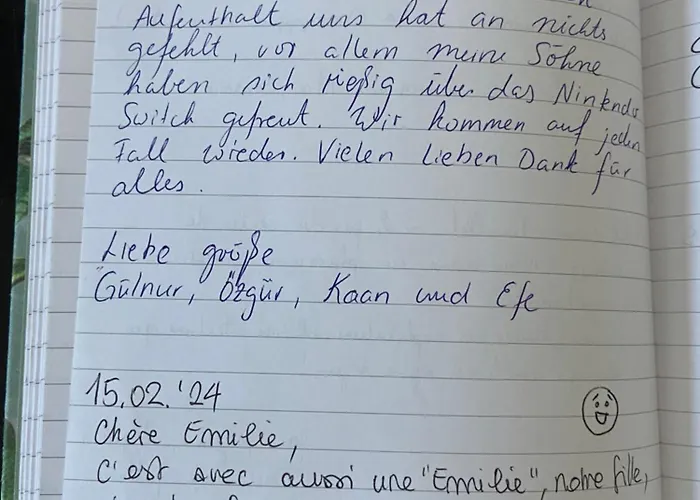 Aufenthalt uns hat an nichts
gefehlt, vor allem meine Söhne
haben sich rießig über das Nintendo
Switch gefreut. Wir kommen auf jeden
Fall wieder. Vielen lieben Dank für
alles.
Liebe größe
Gülnur, Özgür, Kaan und Efe
15.02.'24
Chère Emilie,
C'est avec aussi une "Emilie", notre fille,